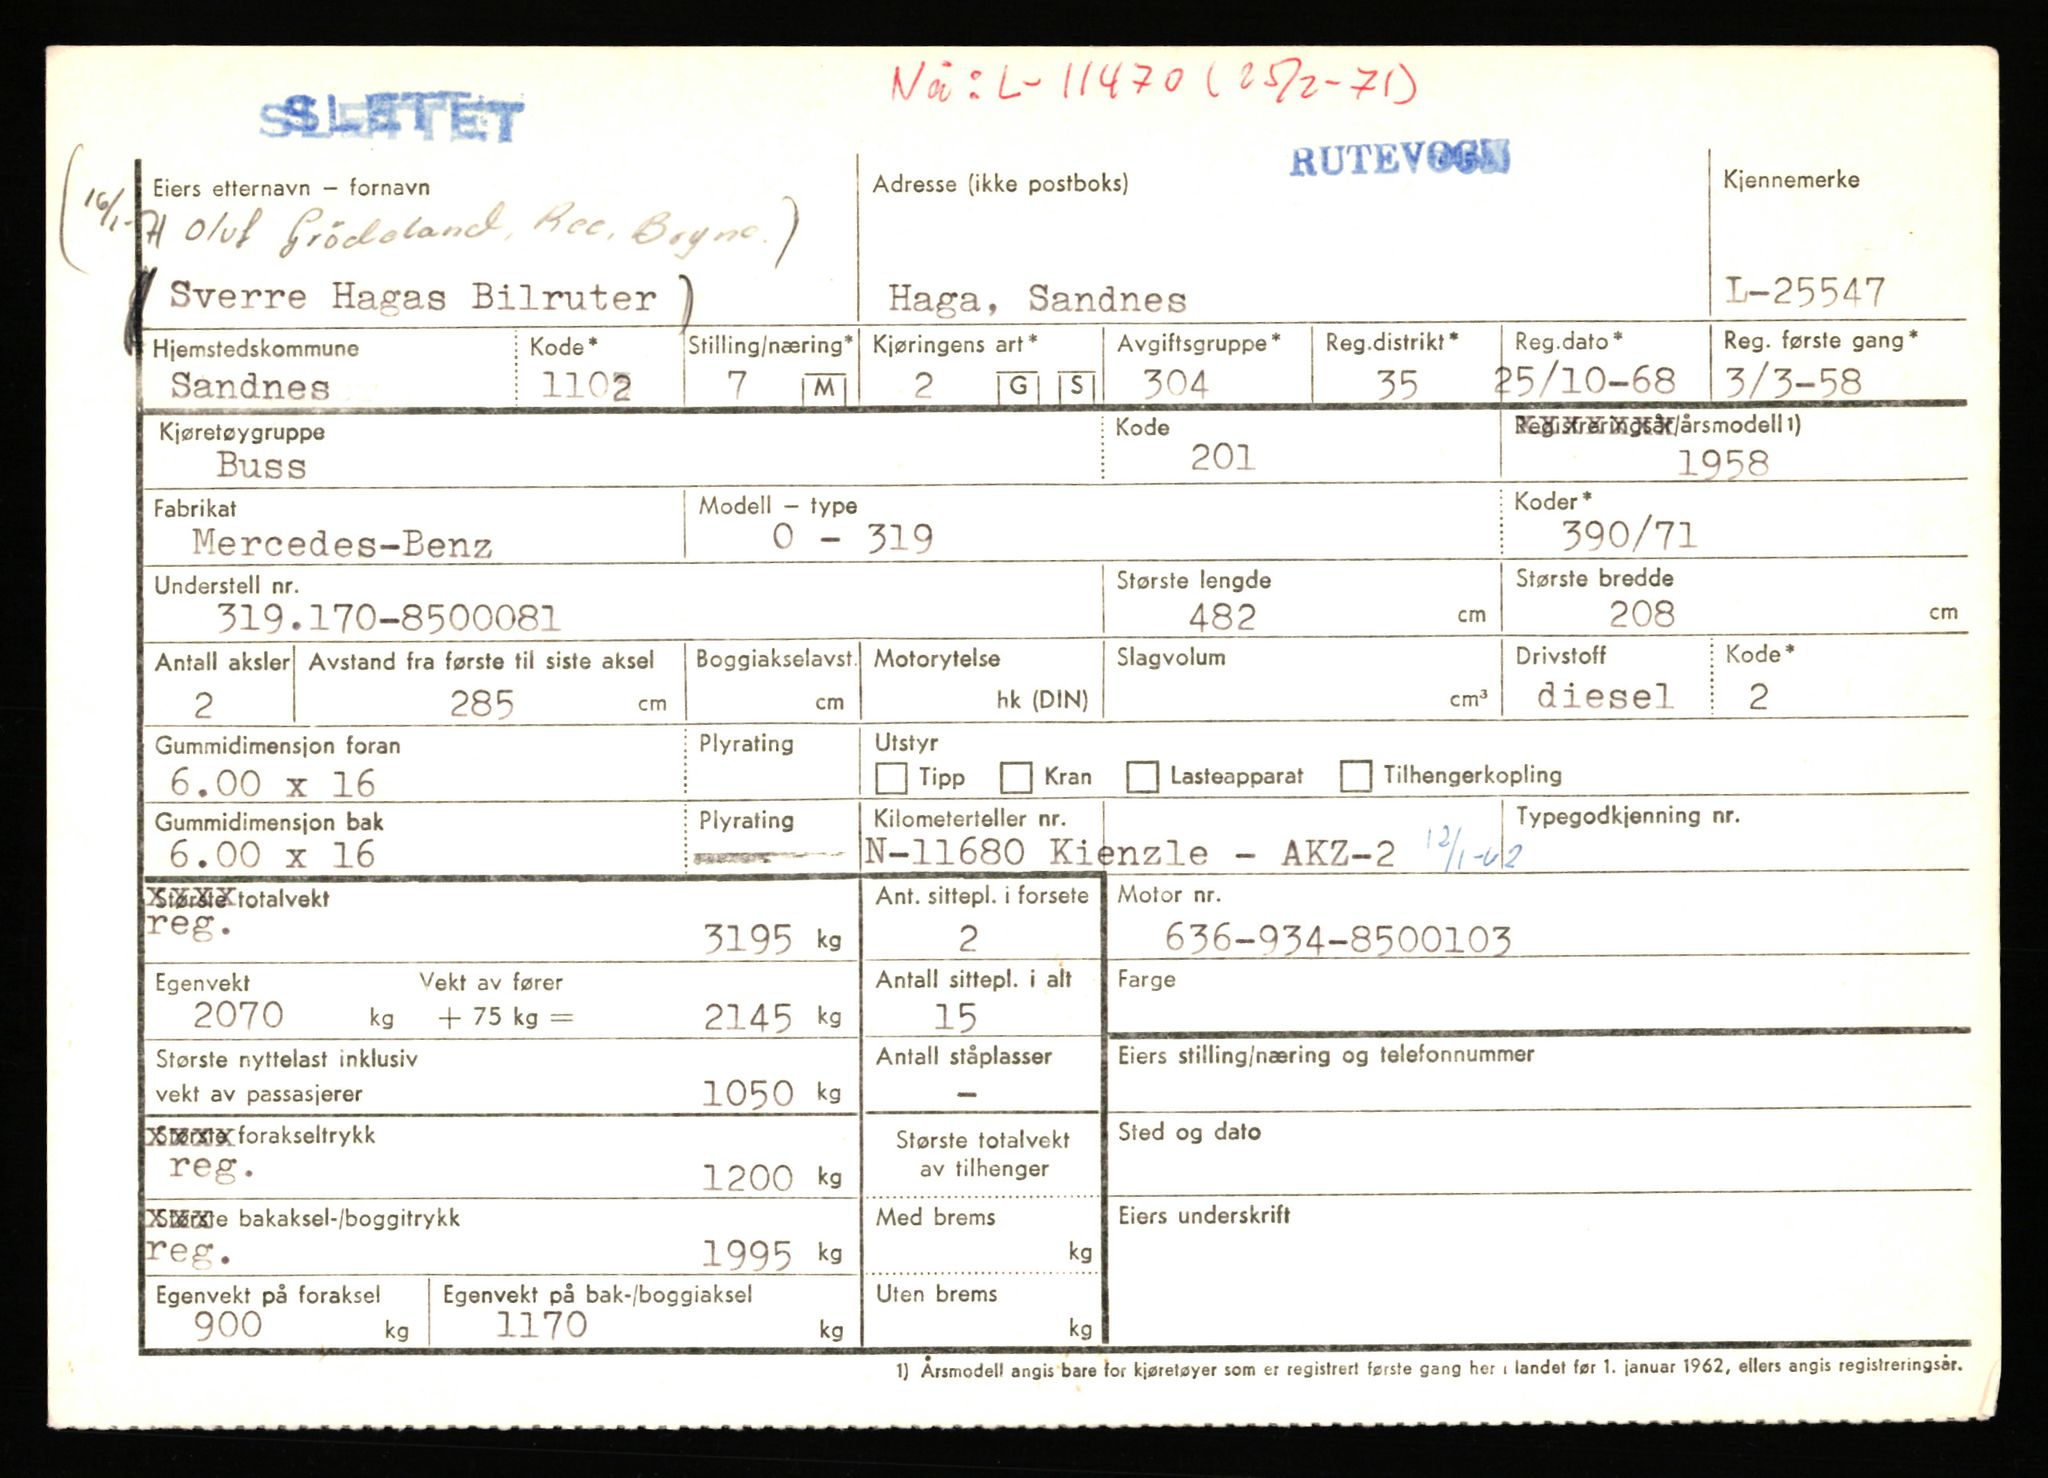 Nå: L-11470 (25/2-71)
SLETTET
RUTEVOGN
Eiers etternavn – fornavn
Adresse (ikke postboks)
Kjennemerke
(16/1-71 Oluf Grödeland, Ree, Bryne.)
(Sverre Hagas Bilruter)
Haga, Sandnes
L-25547
Hjemstedskommune
Kode*
Stilling/næring*
Kjøringens art*
Avgiftsgruppe*
Reg.distrikt*
Reg.dato*
Reg. første gang*
Sandnes
1102
7
M
2
G
S
304
35
25/10-68
3/3-58
Kjøretøygruppe
Kode
Registreringsår/årsmodell 1)
Buss
201
1958
Fabrikat
Modell – type
Koder*
Mercedes-Benz
O - 319
390/71
Understell nr.
Største lengde
Største bredde
319.170-8500081
482 cm
208 cm
Antall aksler
Avstand fra første til siste aksel
Boggiakselavst.
Motorytelse
Slagvolum
Drivstoff
Kode*
2
285 cm
cm
hk (DIN)
cm³
diesel
2
Gummidimensjon foran
Plyrating
Utstyr
6.00 x 16
Tipp
Kran
Lasteapparat
Tilhengerkopling
Gummidimensjon bak
Plyrating
Kilometerteller nr.
Typegodkjenning nr.
6.00 x 16
N-11680 Kienzle - AKZ-2
12/1-62
Største totalvekt
reg.
3195 kg
Ant. sittepl. i forsete
2
Motor nr.
636-934-8500103
Egenvekt
Vekt av fører
2070 kg + 75 kg = 2145 kg
Antall sittepl. i alt
15
Farge
Største nyttelast inklusiv
vekt av passasjerer
1050 kg
Antall ståplasser
-
Eiers stilling/næring og telefonnummer
Største forakseltrykk
reg.
1200 kg
Største totalvekt
av tilhenger
Sted og dato
Største bakaksel-/boggitrykk
reg.
1995 kg
Med brems
kg
Eiers underskrift
Egenvekt på foraksel
Egenvekt på bak-/boggiaksel
Uten brems
900 kg
1170 kg
kg
1) Årsmodell angis bare for kjøretøyer som er registrert første gang her i landet før 1. januar 1962, ellers angis registreringsår.